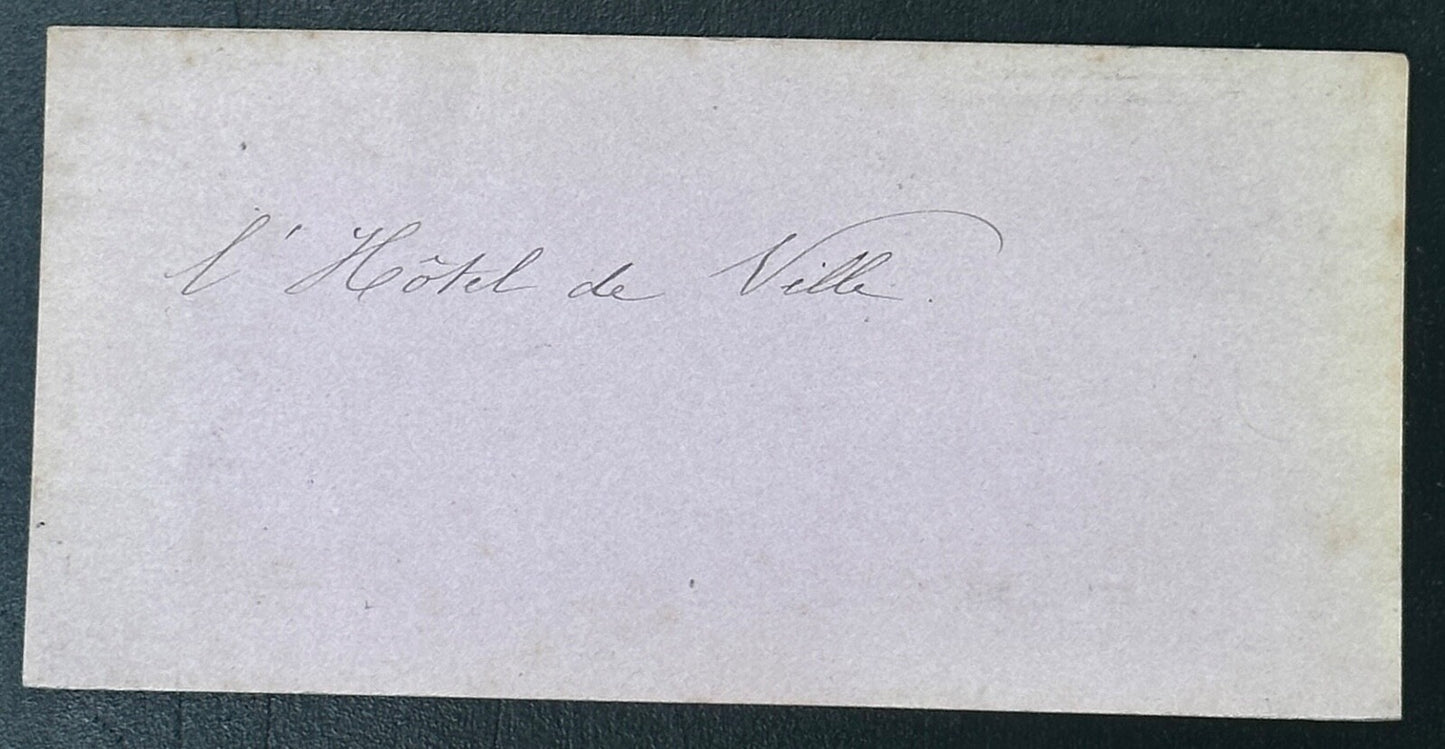 l'Hôtel de Ville.